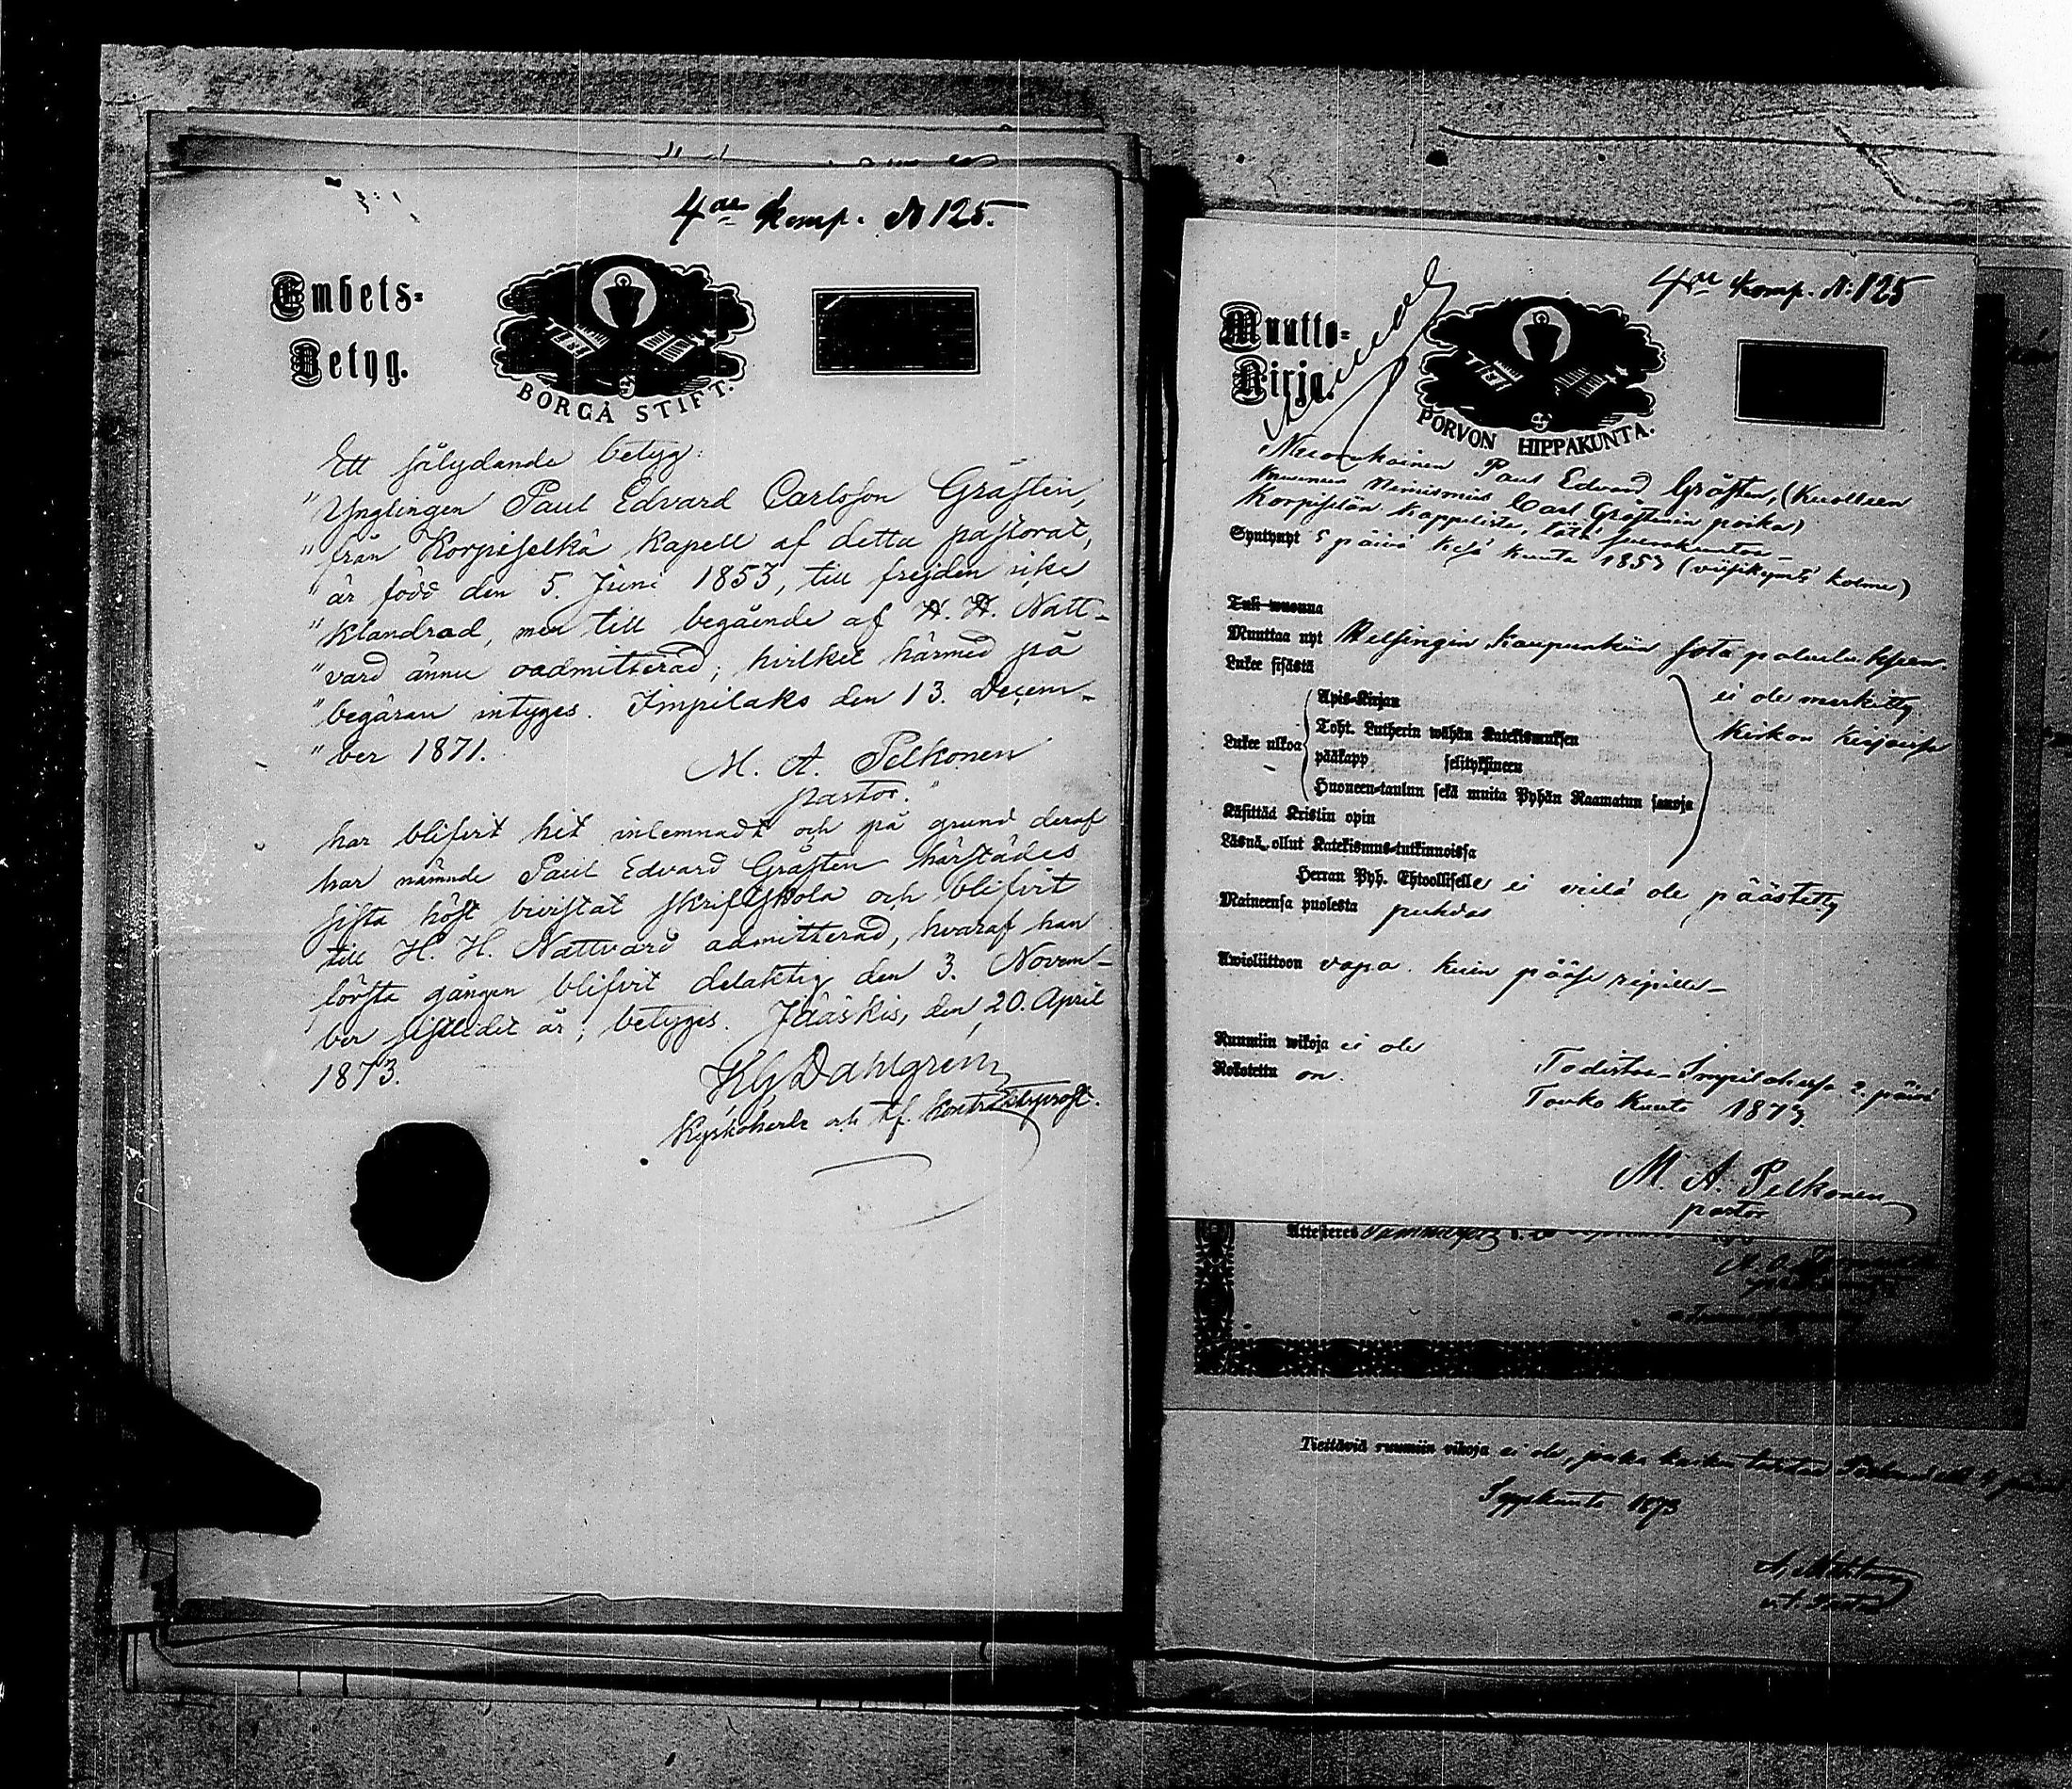 4de komp. N 125.
Embets-
Betyg.
BORGÅ STIFT.
Ett sålydande betyg:
"Ynglingen Paul Edvard Carlsson Gråsten,
"från Korpiselkä Kapell af detta pastorat,
"är född den 5. Juni 1853, till frejden icke
"klandrad, men till begående af H. H. Natt-
"vard ännu oadmitterad; hvilket härmed på
"begäran intyges. Impilaks den 13. Decem-
"ber 1871.
M. A. Pelkonen
pastor."
har blifvit hit inlemnadt och på grund deraf
har nämnde Paul Edvard Gråsten härstädes
sista höst bivistat skriftskola och blifvit
till H. H. Nattvard admitterad, hvaraf han
första gången blifvit delaktig den 3. Novem-
ber sistlidet år; betyges. Jääskis, den 20. April
1873.
KG Dahlgren
Kyrkoherde och tf. Kontraktsprost.
4de Komp. N:125
Muutto-
Kirja.
PORVON HIPPAKUNTA.
Nuorukainen Paul Edvard Gråsten, (Kuolleen
Nimismies Carl Gråstenin poika)
Korpiselän Kappelista, tätä seurakuntaa-
Syntynyt 5 päivä Kesä kuuta 1853 (viisikymtä kolme)
Tuli wuonna
Muuttaa nyt Helsingin Kaupunkiin sota palvelukseen.
Lukee sisästä
Lukee ulkoa
Apis-Kirjan
Toht. Lutherin wähän Katekismuksen
pääkapp selityksineen
Huoneen-taulun sekä muita Pyhän Raamatun sanoja
ei ole merkitty
Kirkon kirjoissa
Käsittää Kristin opin
Läsnä ollut Katekismus-tutkinnoissa
Herran Pyh. Ehtoollisella ei vielä ole päästetty
Maineensa puolesta puhdas
Awioliittoon vapa. kuin pääse ripille-
Ruumiin wikoja ei ole
Rokotettu on.
Todistaa Impilahessa 2. päivä
Touko Kuuta 1873.
M. A. Pelkonen
pastor
Attesteres
Tiettäviä ruumiin vikoja ei ole,
Syyskuuta 1873